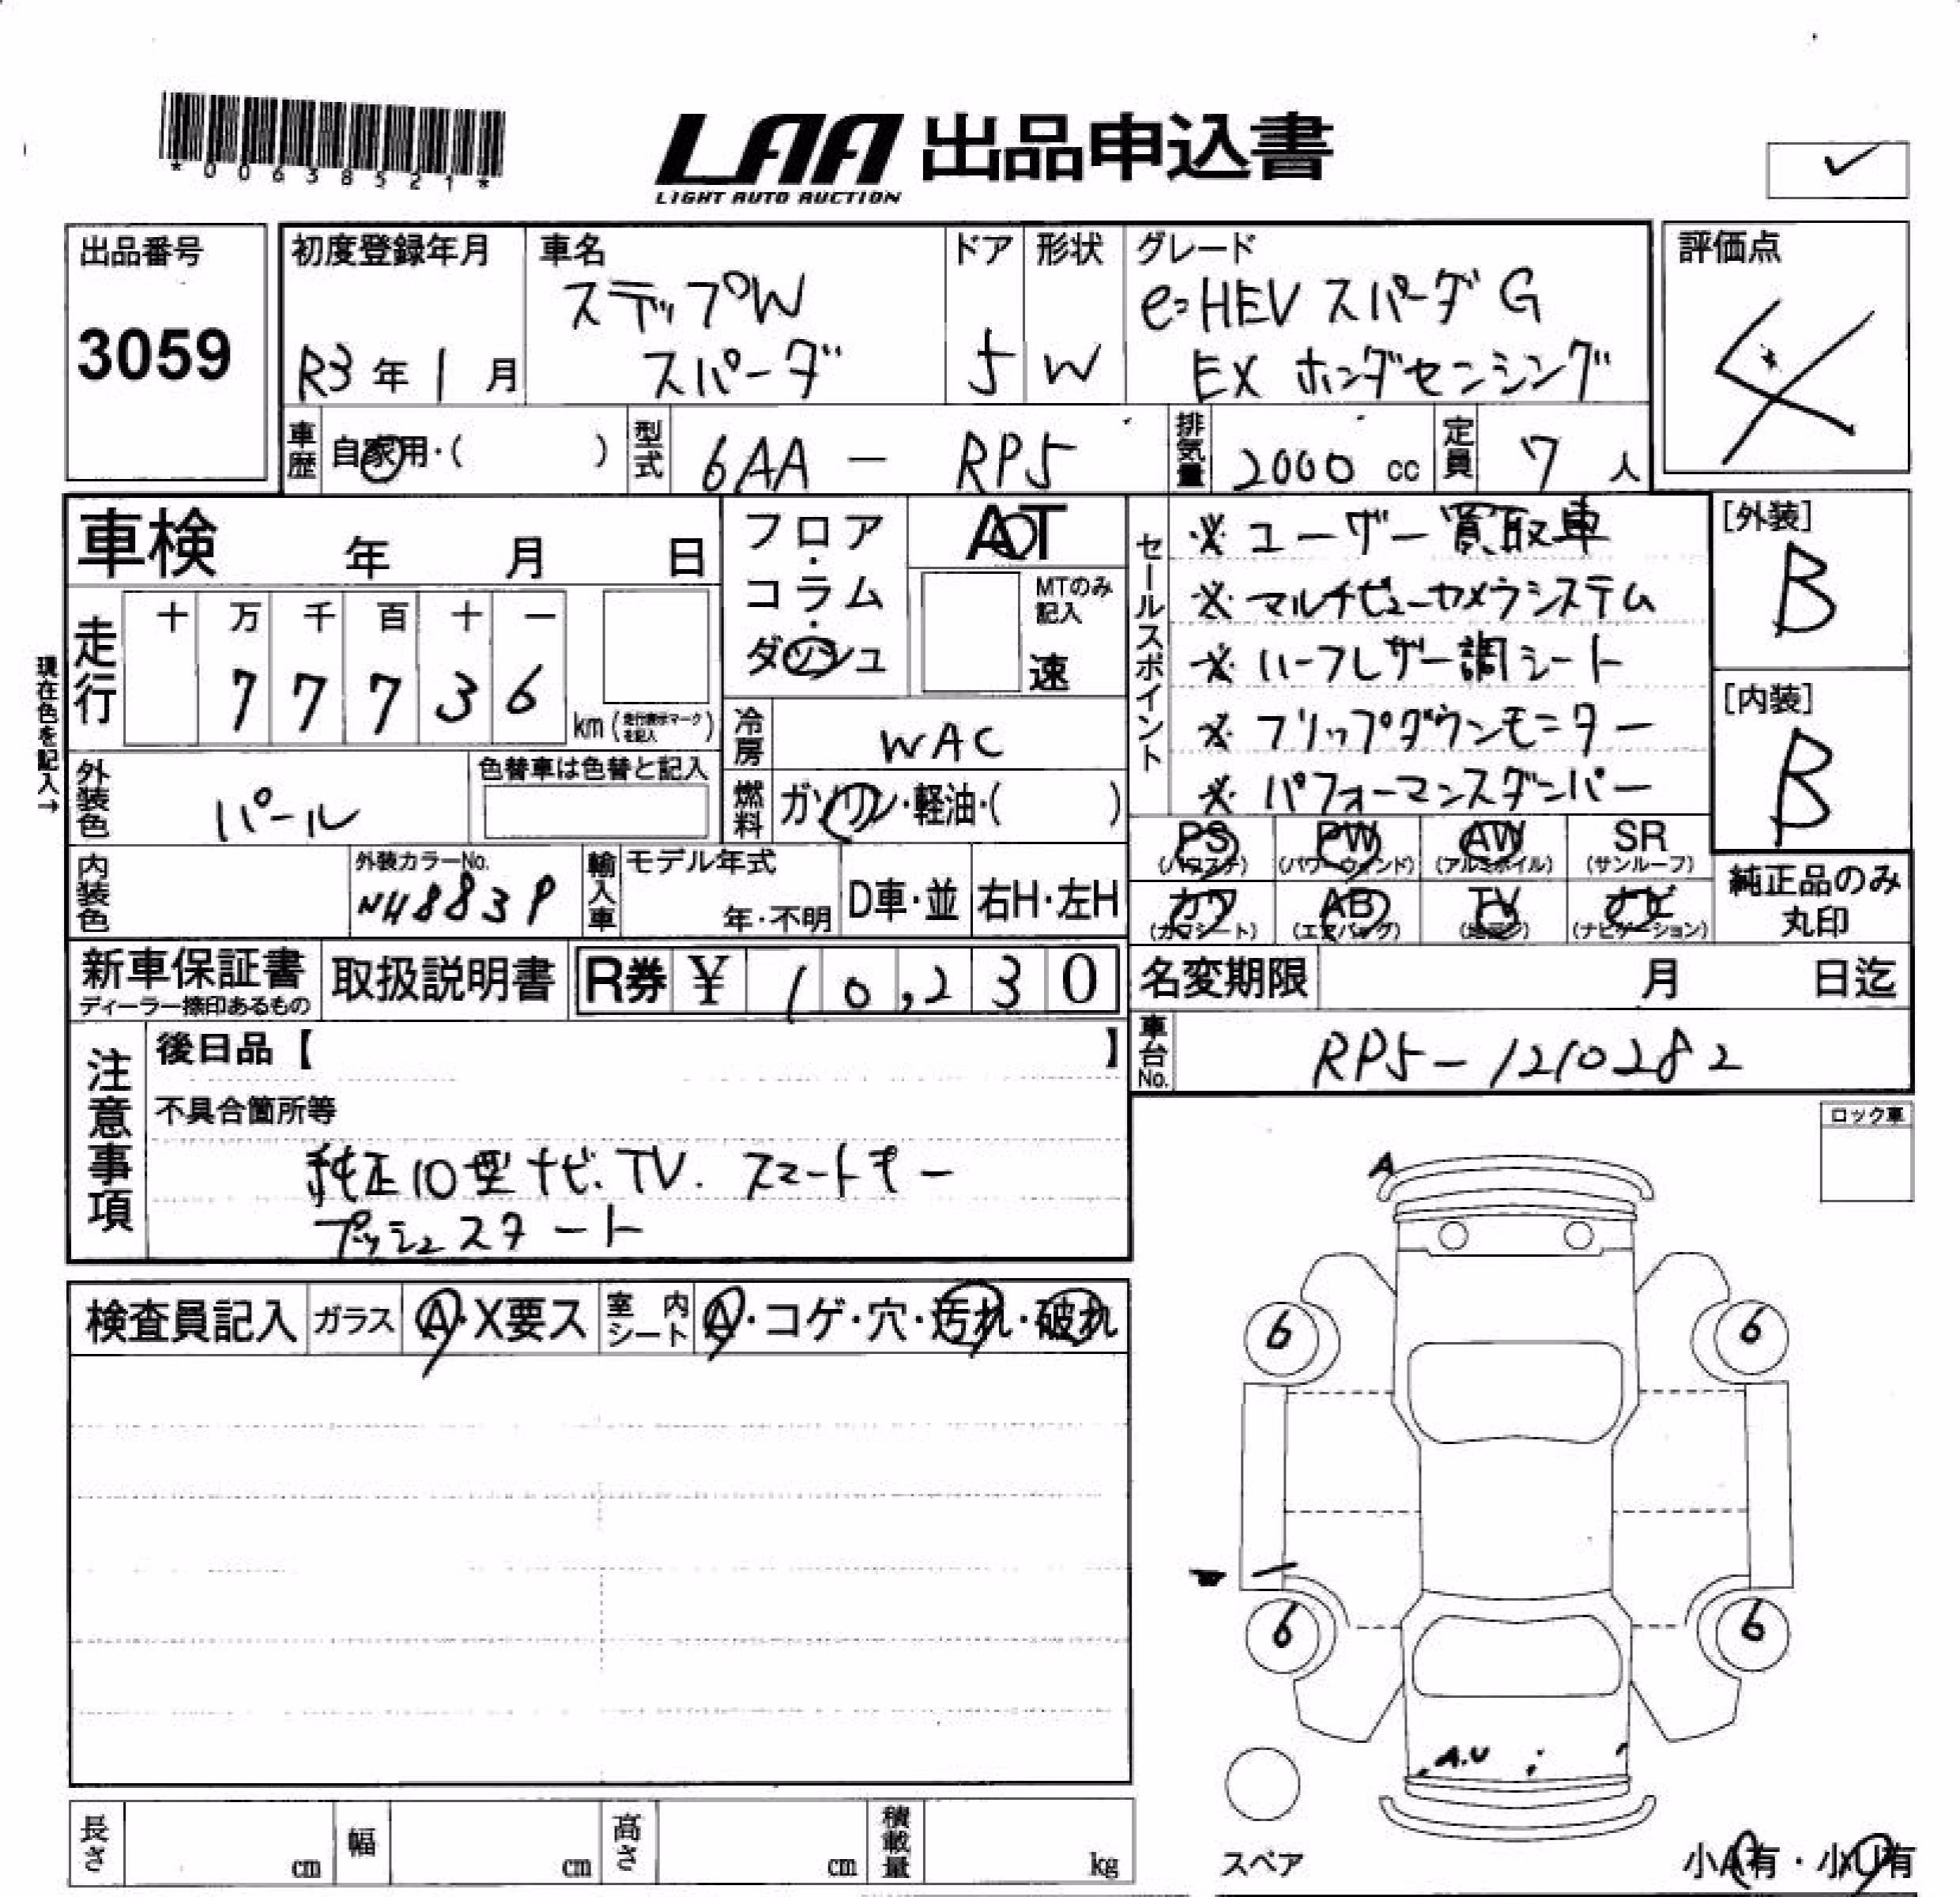 *00638521*
LAA 出品申込書
LIGHT AUTO AUCTION
出品番号
3059
初度登録年月
R3年1月
車名
ステップW
スパーダ
ドア
5
形状
W
グレード
e:HEV スパーダ G
EX ホンダセンシング
評価点
4
車歴
自家用・( )
型式
6AA - RP5
排気量
2000 cc
定員
7 人
車検 年 月 日
フロア・コラム・ダッシュ
AT
MTのみ記入
速
セールスポイント
※ユーザー買取車
※マルチビューカメラシステム
※ハーフレザー調シート
※フリップダウンモニター
※パフォーマンスダンパー
[外装]
B
[内装]
B
現在色を記入→
走行
十 万 千 百 十 一
7 7 7 3 6
km(走行表示マークを記入)
冷房
WAC
外装色
パール
色替車は色替と記入
燃料
ガソリン・軽油・( )
PS AW PW SR
(パワステ) (パワーウィンド) (アルミホイル) (サンルーフ)
カワ AB TV ナビ
(カワシート) (エアバッグ) (地デジ) (ナビゲーション)
純正品のみ
丸印
内装色
外装カラーNo.
NH883P
輸入車
モデル年式
年・不明
D車・並
右H・左H
新車保証書
ディーラー捺印あるもの
取扱説明書
R券 ¥ 10,230
名変期限 月 日迄
車台No.
RP5-1210282
注意事項
後日品【 】
不具合箇所等
純正10型ナビ、TV. スマートキー
プッシュスタート
ロック車
A
検査員記入
ガラス
A・X要ス
室内シート
A・コゲ・穴・汚れ・破れ
6
6
6
6
A.U
スペア
小A有・小U有
長さ cm
幅 cm
高さ cm
積載量 kg